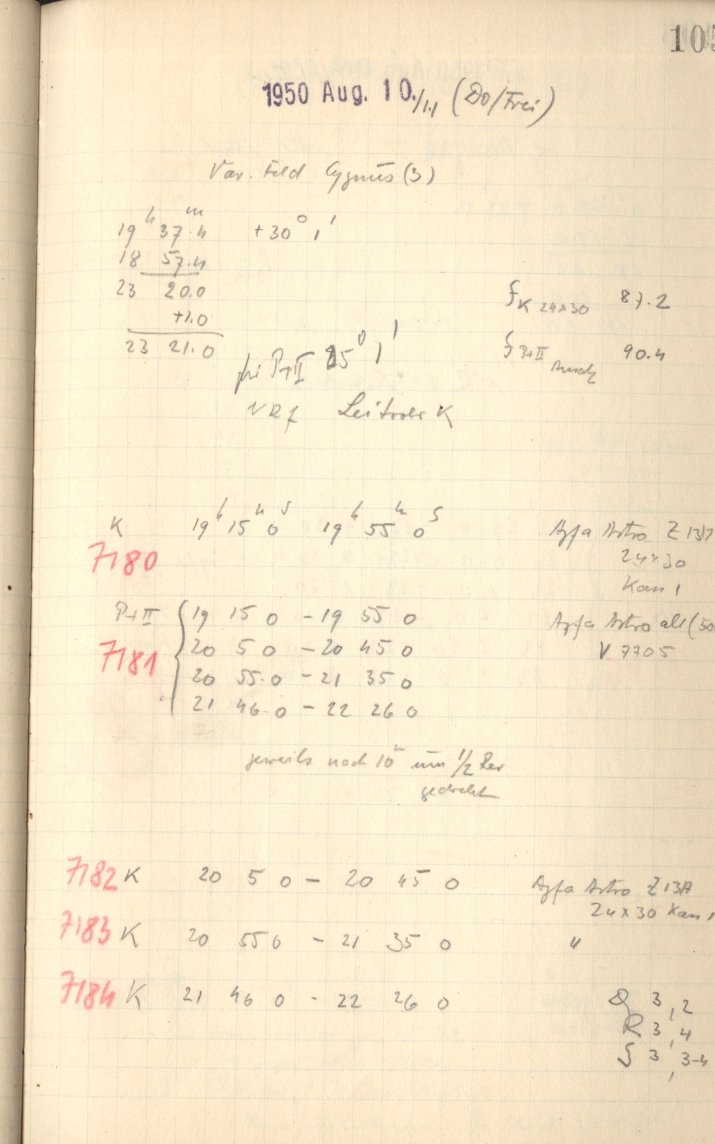 105
1950 Aug. 10./11. (Do/Frei)
Var. Feld Cygnus (3)
19 h 37.4 m +30° 1'
18 57.4
23 20.0
+1.0
23 21.0
f K 24x30 87.2
P+II 25° 1'
f P+II 90.4
Leitrohr K
K 19 h 15 m 0 s 19 h 55 m 0 s Agfa Astro Z 131
7180
24x30
Kass 1
P+II 19 15 0 - 19 55 0 Agfa Astro alt (50
7181
20 5 0 - 20 45 0 V 7705
20 55 0 - 21 35 0
21 46 0 - 22 26 0
jeweils nach 10 m um 1/2 Rev
gedreht
7182 K 20 5 0 - 20 45 0 Agfa Astro Z 131
24x30 Kass 1
7183 K 20 55 0 - 21 35 0 "
7184 K 21 46 0 - 22 26 0
D 3,2
R 3,4
S 3,3-4